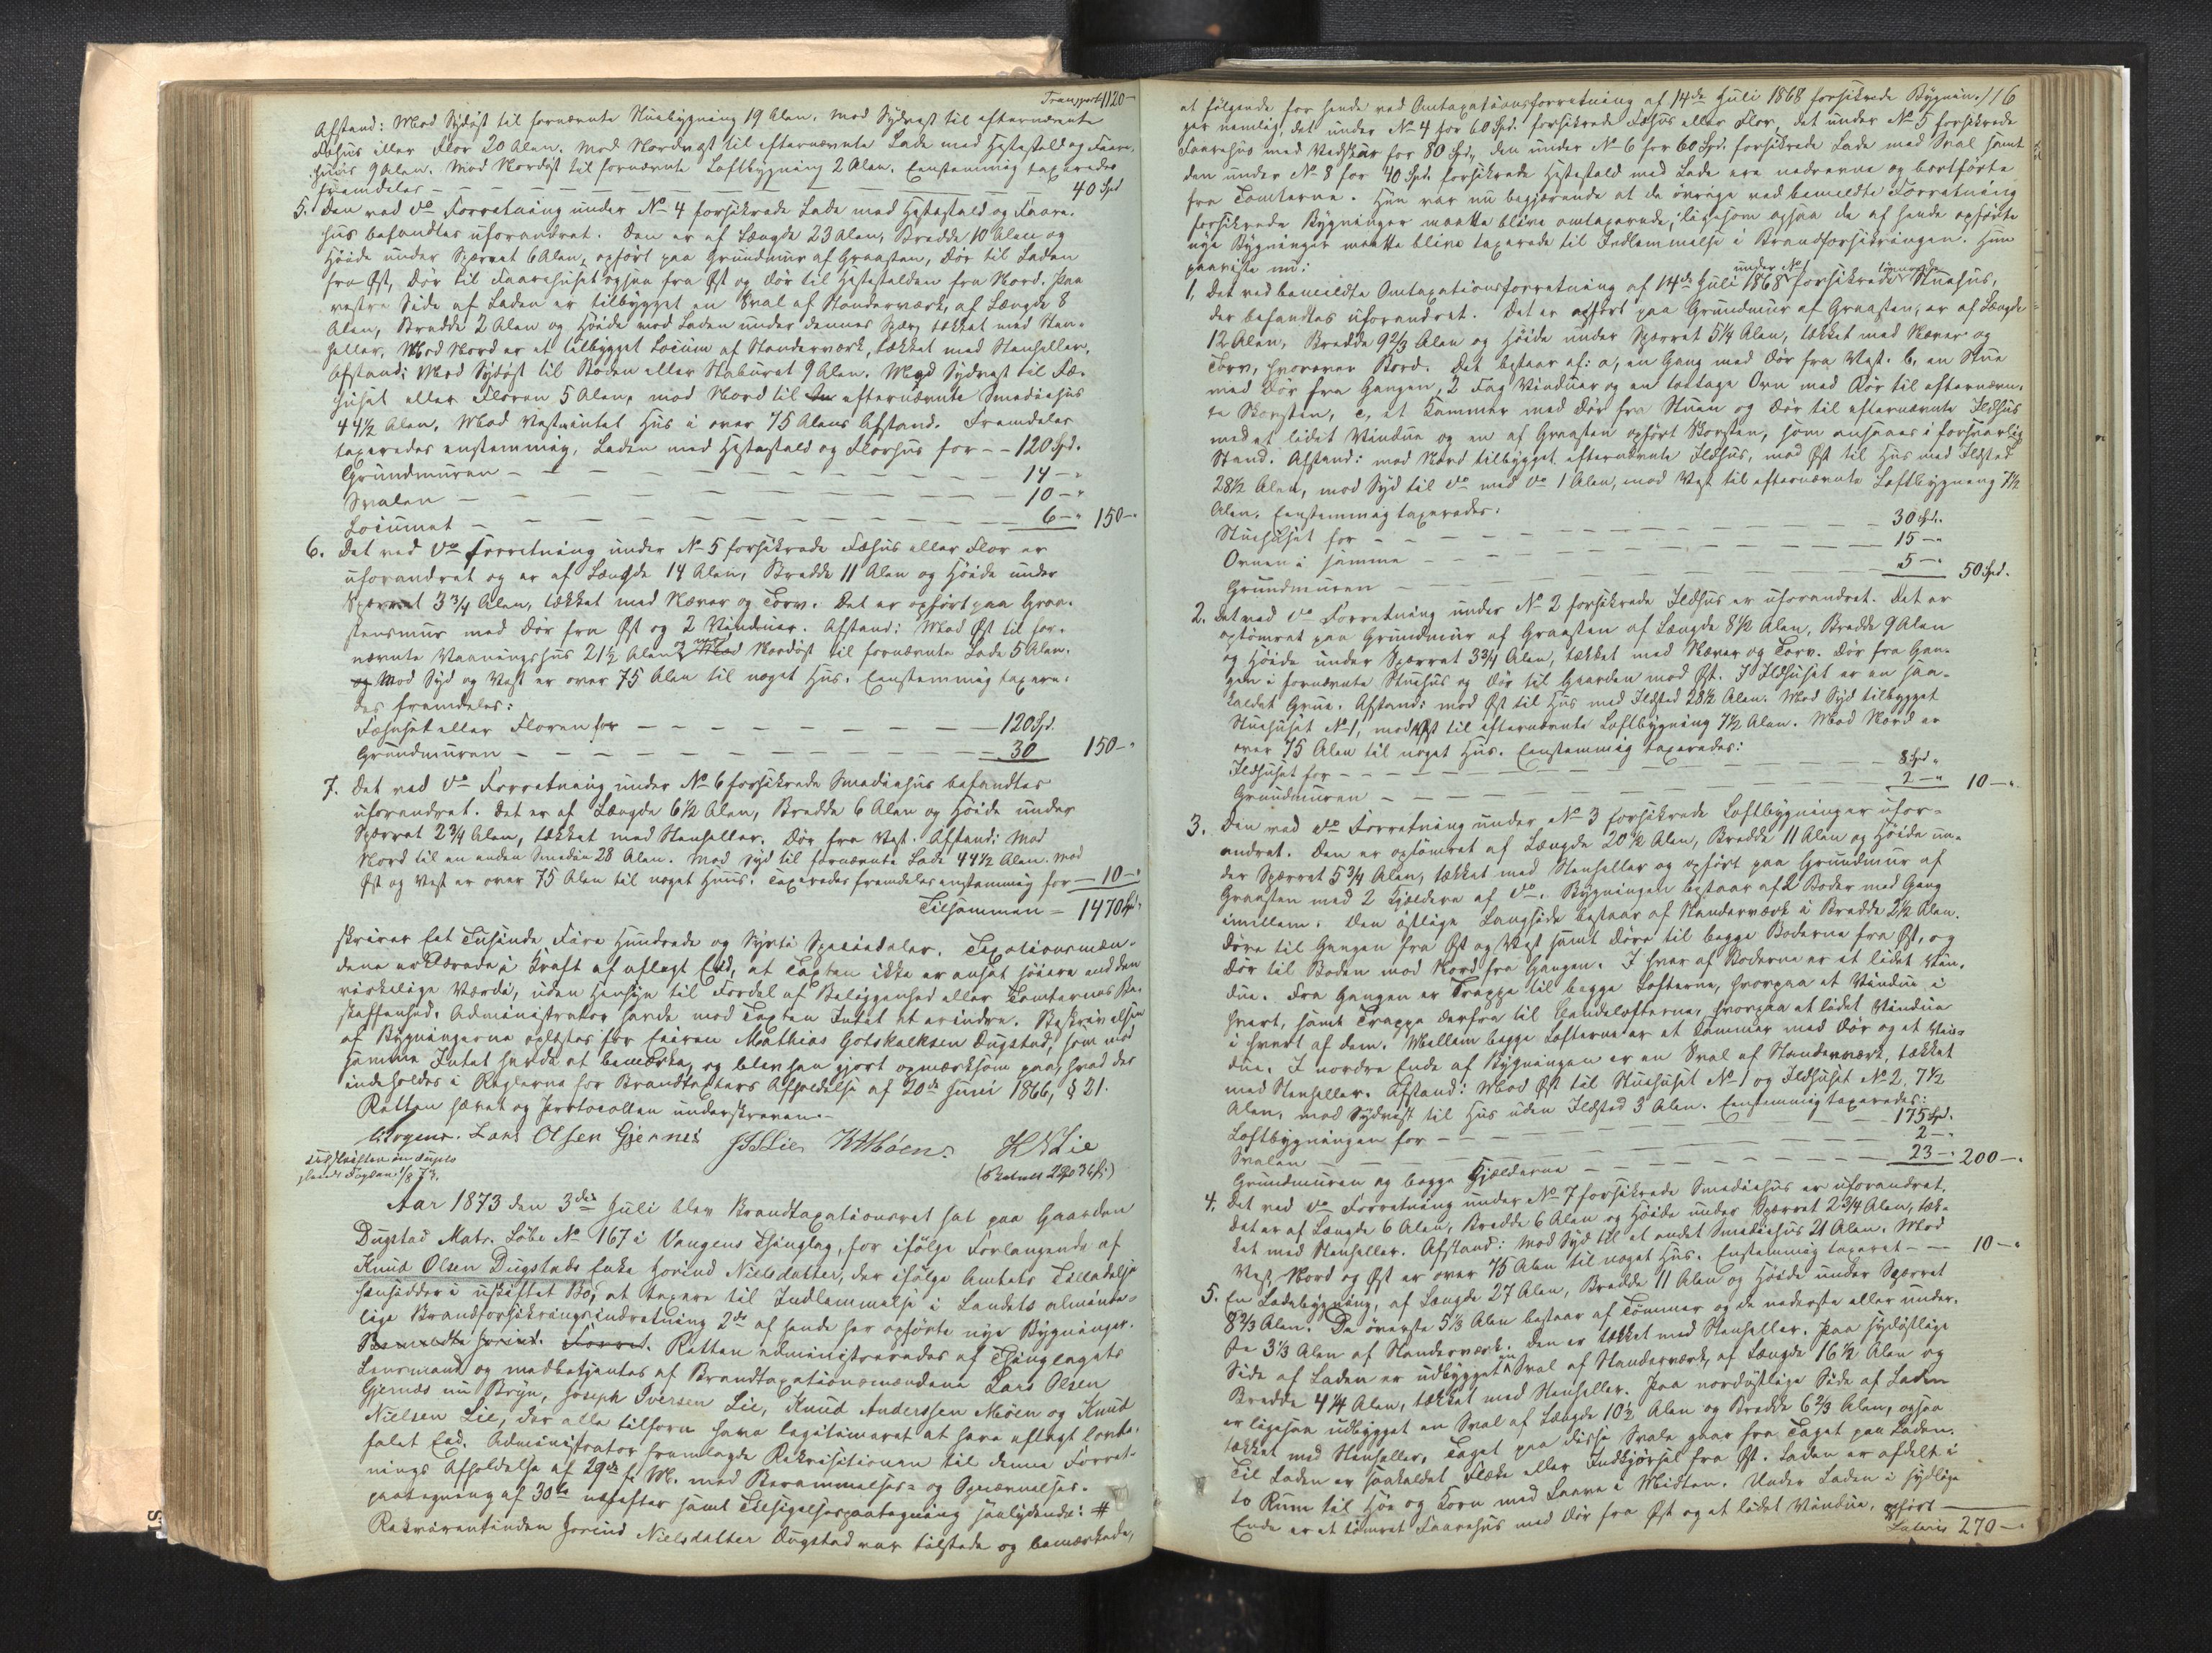 Transport 1120-
Afstand: Mod Sydøst til fornævnte Stuebygning 19 Alen. Mod Sydvest til efternævnte
Fæhuus eller Flor 20 Alen. Mod Nordvest til efternævnte Lade med Hestestald og Faare-
huus 9 Alen. Mod Nordøst til fornævnte Loftbygning 2 Alen. Eenstemmig taxeredes
fremdeles - - - - - 40 Spd
5. Den ved do Forretning under No 4 forsikrede Lade med Hestestald og Faare-
hus befandtes uforandret. Den er af Længde 23 Alen, Bredde 10 Alen og
Høide under Sperret 6 Alen, opført paa Grundmur af Graasten, Dør til Laden
fra Øst, Dør til Faarehuset ogsaa fra Øst og Dør til Hestestalden fra Nord. Paa
vestre Side af Laden er tilbygget en Sval af Standerværk, af Længde 8
Alen, Bredde 2 Alen og Høide mod Laden under dennes Spær, tækket med Sten-
heller. Mod Nord er et tilbygget Locum af Standerværk, tækket med Stenheller.
Afstand: Mod Sydøst til Boden eller Staburet 9 Alen. Mod Sydvest til Fæ-
huset eller Floren 5 Alen, mod Nord til efternævnte Smediehus
44½ Alen. Mod Vest intet Hus i over 75 Alens Afstand. Fremdeles
taxeredes enstemmig, Laden med Hestestald og Florhus for - - 120 Spd.
Grundmuren - - - - - 14 - "
Svalen - - - - - 10 - "
Locumet - - - - - 6 - " 150 - "
6. Det ved do Forretning under No 5 forsikrede Fæhus eller Flor er
uforandret og er af Længde 14 Alen, Bredde 11 Alen og Høide under
Sperret 3¾ Alen, tækket med Næver og Torv. Det er opført paa Graa-
stensmur med Dør fra Øst og 2 Vinduer. Afstand: Mod Øst til for-
nævnte Vaaningshus 21½ Alen og mod Nordøst til fornævnte Lade 5 Alen.
Mod Syd og Vest er over 75 Alen til noget Hus. Eenstemmig taxere-
des fremdeles:
Fæhuset eller Floren for - - - - - 120 Spd.
Grundmuren - - - - - 30 150 - "
7. Det ved do Forretning under No 6 forsikrede Smediehus befandtes
uforandret. Det er af Længde 6½ Alen, Bredde 6 Alen og Høide under
Sperret 2¾ Alen, tækket med Stenheller. Dør fra Vest. Afstand: Mod
Nord til en anden Smedie 28 Alen. Mod Syd til fornævnte Lade 44½ Alen. Mod
Øst og Vest er over 75 Alen til noget Huus. Taxeredes fremdeles enstemmig for - 10 - "
Tilsammen - 1470 Spd.
skriver Eet Tusinde Fire Hundrede og Sytti Speciedaler. Taxationsmæn-
dene erklærede i Kraft af aflagt Eed, at Taxten ikke er ansat høiere end den
virkelige Værdi, uden Hensyn til Fordel af Beliggenhed eller Tomternes Be-
skaffenhed. Administrator havde mod Taxten Intet at erindre. Beskrivelsen
af Bygningerne oplæstes for Eieren Mathias Gotskalksen Dugstad, som mod
samme Intet havde at bemærke, og blev han gjort opmærksom paa, hvad der
indeholdes i Reglerne for Brandtaxters Afholdelse af 20de Juni 1866, § 21.
Retten hævet og Protocollen underskreven. -
Lars Olsen Gjernes JILie KAMøen. KNLie
Aar 1873 den 3die Juli blev Brandtaxationsret sat paa Gaarden
Dugstad Matr. Løbe No 167 i Vangens Thinglag, for ifølge Forlangende af
Knud Olsen Dugstads Enke Gorind Nielsdatter, der ifølge Amtets Tilladelse
hensidder i uskiftet Bo, at taxere til Indlemmelse i Landets alminde-
lige Brandforsikringsindretning 2de af hende her opførte nye Bygninger.
Retten administreredes af Thinglagets
Lensmand og medbetjentes af Brandtaxationsmændene Lars Olsen
Gjernæs nu Bryn, Joseph Iversen Lie, Knud Anderssen Møen og Knud
Nielsen Lie, der alle tilforn have legitimeret at have aflagt lovbe-
falet Eed. Administrator fremlagde Rekvisitionen til denne Forret-
nings Afholdelse af 29de f. M. med Berammelses- og Opnævnelses-
paategning af 30te næstefter samt Tilsigelsespaategning saalydende: #
Rekvirentinden Gorind Nielsdatter Dugstad var tilstede og bemærkede,
at følgende for hende ved Omtaxationsforretning af 14de Juli 1868 forsikrede Bygnin- 116
ger nemlig, det under No 4 for 60 Spd. forsikrede Fæhus eller Flor, det under No 5 forsikrede
Faarehus med Vedskur for 80 Spd., den under No 6 for 60 Spd. forsikrede Lade med Sval samt
den under No 8 for 40 Spd. forsikrede Hestestald med Lade ere nedrevne og bortførte
fra Tomterne. Hun var nu begjærende at de øvrige ved bemeldte Forretning
forsikrede Bygninger maatte blive omtaxerede, ligesom ogsaa de af hende opførte
nye Bygninger maatte blive taxerede til Indlemmelse i Brandforsikringen. Hun
paaviste nu:
1, Det ved bemeldte Omtaxationsforretning af 14de Juli 1868 under No 1 forsikrede tømrede Stuehus,
der befandtes uforandret. Det er opført paa Grundmur af Graasten, er af Længde
12 Alen, Bredde 9⅔ Alen og Høide under Sperret 5¼ Alen, tækket med Næver og
Torv, hvorover Bord. Det bestaar af: a, en Gang med Dør fra Vest. b, en Stue
med Dør fra Gangen, 2 Fag Vinduer og en toetage Ovn med Rør til efternævn-
te Skorsten, c, et Kammer med Dør fra Stuen og Dør til efternævnte Ildhus
med et lidet Vindue og en af Graasten opført Skorsten, som ansaaes i forsvarlig
Stand. Afstand: mod Nord tilbygget efternævnte Ildhus, mod Øst til Hus med Ildsted
28½ Alen, mod Syd til do med do 1 Alen, mod Vest til efternævnte Loftbygning 7½
Alen. Eenstemmig taxeredes:
Stuehuset for - - - - - 30 Spd.
Ovnen i samme - - - - - 15 - "
Grundmuren - - - - - 5 - " 50 Spd.
2. Det ved do Forretning under No 2 forsikrede Ildhus er uforandret. Det er
optømret paa Grundmur af Graasten af Længde 8½ Alen, Bredde 9 Alen
og Høide under Sperret 3¾ Alen, tækket med Næver og Torv. Dør fra Gan-
gen i fornævnte Stuehus og Dør til Gaarden mod Øst. I Ildhuset er en saa-
kaldet Grue. Afstand: mod Øst til Hus med Ildsted 28½ Alen. Mod Syd tilbygget
Stuehuset No 1, mod Vest til efternævnte Loftbygning 7½ Alen. Mod Nord er
over 75 Alen til noget Hus. Eenstemmig taxeredes:
Ildhuset for - - - - - 8 Spd "
Grundmuren - - - - - 2 - " 10 - "
3. Den ved do Forretning under No 3 forsikrede Loftbygninger ufor-
andret. Den er optømret af Længde 20½ Alen, Bredde 11 Alen og Høide un-
der Sperret 5¾ Alen, tækket med Stenheller og opført paa Grundmur af
Graasten med 2 Kjældere af do. Bygningen bestaar af 2 Boder med Gang
imellem. Den østlige Langside bestaar af Standerværk i Bredde 2½ Alen.
Døre til Gangen fra Øst og Vest samt Døre til begge Boderne fra Øst, og
Dør til Boden mod Nord fra Gangen. I hver af Boderne er et lidet Vin-
due. Fra Gangen er Trappe til begge Lofterne, hvorpaa et Vindue i
hvert, samt Trappe derfra til Handelofterne, hvorpaa et lidet Vindue
i hvert af dem. Mellem begge Lofterne er et Kammer med Dør og et Vin-
due. I nordre Ende af Bygningen er en Sval af Standerværk, tækket
med Stenheller. Afstand: Mod Øst til Stuehuset No 1 og Ildhuset No 2, 7½
Alen, mod Sydvest til Hus uden Ildsted 3 Alen. Eenstemmig taxeredes:
Loftbygningen for - - - - - 175 Spd.
Svalen - - - - - 2 - "
Grundmuren og begge Kjælderne - - - - - 23 - " 200 - "
4. Det ved do Forretning under No 7 forsikrede Smediehus er uforandret.
Det er af Længde 6 Alen, Bredde 6 Alen og Høide under Sperret 2¾ Alen, tæk-
ket med Stenheller. Afstand: Mod Syd til et andet Smediehus 21 Alen. Mod
Vest, Nord og Øst er over 75 Alen til noget Hus. Enstemmig taxeret - - 10 - "
5. En Ladebygning, af Længde 27 Alen, Bredde 11 Alen og Høide under Sperret
8⅔ Alen. De øverste 5⅓ Alen bestaar af Tømmer og de nederste eller under-
ste 3⅓ Alen af Standerværk. Den er tækket med Stenheller. Paa sydøstlige
Side af Laden er udbygget en Sval af Standerværk, af Længde 16½ Alen og
Bredde 4¼ Alen, tækket med Stenheller. Paa nordøstlige Side af Laden
er ligesaa udbygget en Sval af Længde 10½ Alen og Bredde 6⅔ Alen, ogsaa
tækket med Stenheller, Taget paa disse Svale gaar fra Taget paa Laden.
Til Laden er saakaldet Flæke eller Indkjørsel fra Øst. Laden er afdelt i
to Rum til Høe og Korn med Laave i Midten. Under Laden i sydlige
Ende er et tømret Faarehus med Dør fra Øst og et lidet Vindue, opført
Lateris 270 - "